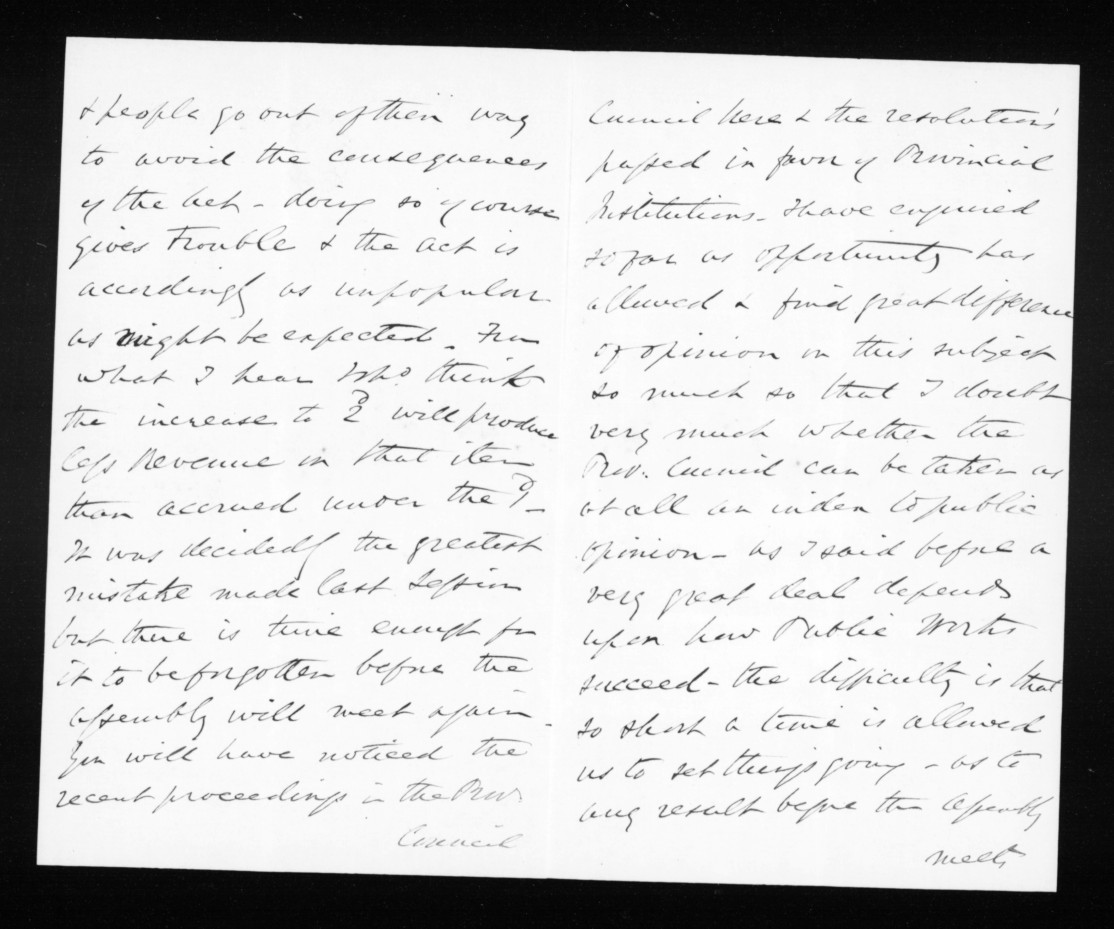 & people go out of their way
to avoid the consequences
of the Act - doing so of course
gives trouble & the act is
accordingly as unpopular
as might be expected - From
what I hear I shd. think
the increase to 2d will produce
less Revenue on that item
than accrued under the 1d -
It was decidedly the greatest
mistake made last Session
but there is time enough for
it to be forgotten before the
assembly will meet again -
You will have noticed the
recent proceedings in the Prov.
Council
Council here & the resolutions
passed in favor of Provincial
Institutions - I have enquired
so far as opportunity has
allowed & find great difference
of opinion on this subject
so much so that I doubt
very much whether the
Prov. Council can be taken as
at all an index to public
opinion - as I said before a
very great deal depends
upon how Public Works
succeed - the difficulty is that
so short a time is allowed
us to set things going - as to
any result before the Assembly
meets